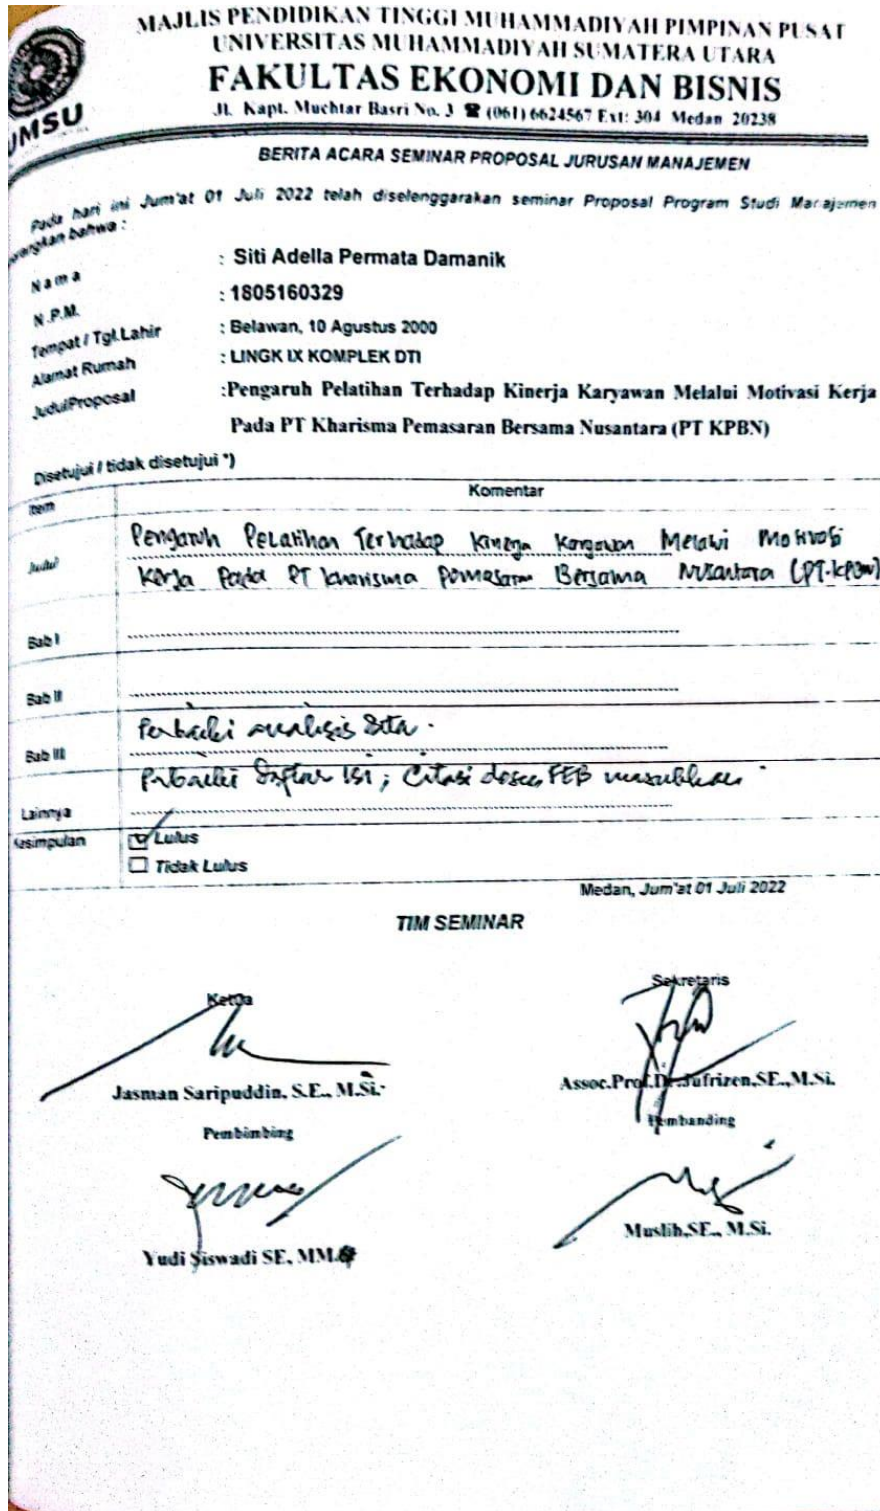 MAJLIS PENDIDIKAN TINGGI MUHAMMADIYAH PIMPINAN PUSAT
UNIVERSITAS MUHAMMADIYAH SUMATERA UTARA
FAKULTAS EKONOMI DAN BISNIS
Jl. Kapt. Muchtar Basri No. 3 ☎ (061) 6624567 Ext: 304 Medan 20238
UMSU
BERITA ACARA SEMINAR PROPOSAL JURUSAN MANAJEMEN
Pada hari ini Jum'at 01 Juli 2022 telah diselenggarakan seminar Proposal Program Studi Manajemen
erangkan bahwa :
N a m a : Siti Adella Permata Damanik
N .P.M. : 1805160329
Tempat / Tgl.Lahir : Belawan, 10 Agustus 2000
Alamat Rumah : LINGK IX KOMPLEK DTI
JudulProposal :Pengaruh Pelatihan Terhadap Kinerja Karyawan Melalui Motivasi Kerja
Pada PT Kharisma Pemasaran Bersama Nusantara (PT KPBN)
Disetujui / tidak disetujui *)
Item Komentar
Judul Pengaruh Pelatihan Terhadap Kinerja Karyawan Melalui Motivasi
Kerja Pada PT kharisma Pemasaran Bersama Nusantara (PT.KPBN)
Bab I
Bab II
Bab III Perbaiki analisis data.
Lainnya Perbaiki Daftar Isi; Citasi dosen FEB masukkan
Kesimpulan Lulus
Tidak Lulus
Medan, Jum'at 01 Juli 2022
TIM SEMINAR
Ketua Sekretaris
Jasman Saripuddin, S.E., M.Si. Assoc.Prof.Dr.Jufrizen,SE.,M.Si.
Pembimbing Pembanding
Yudi Siswadi SE, MM. Muslih,SE., M.Si.